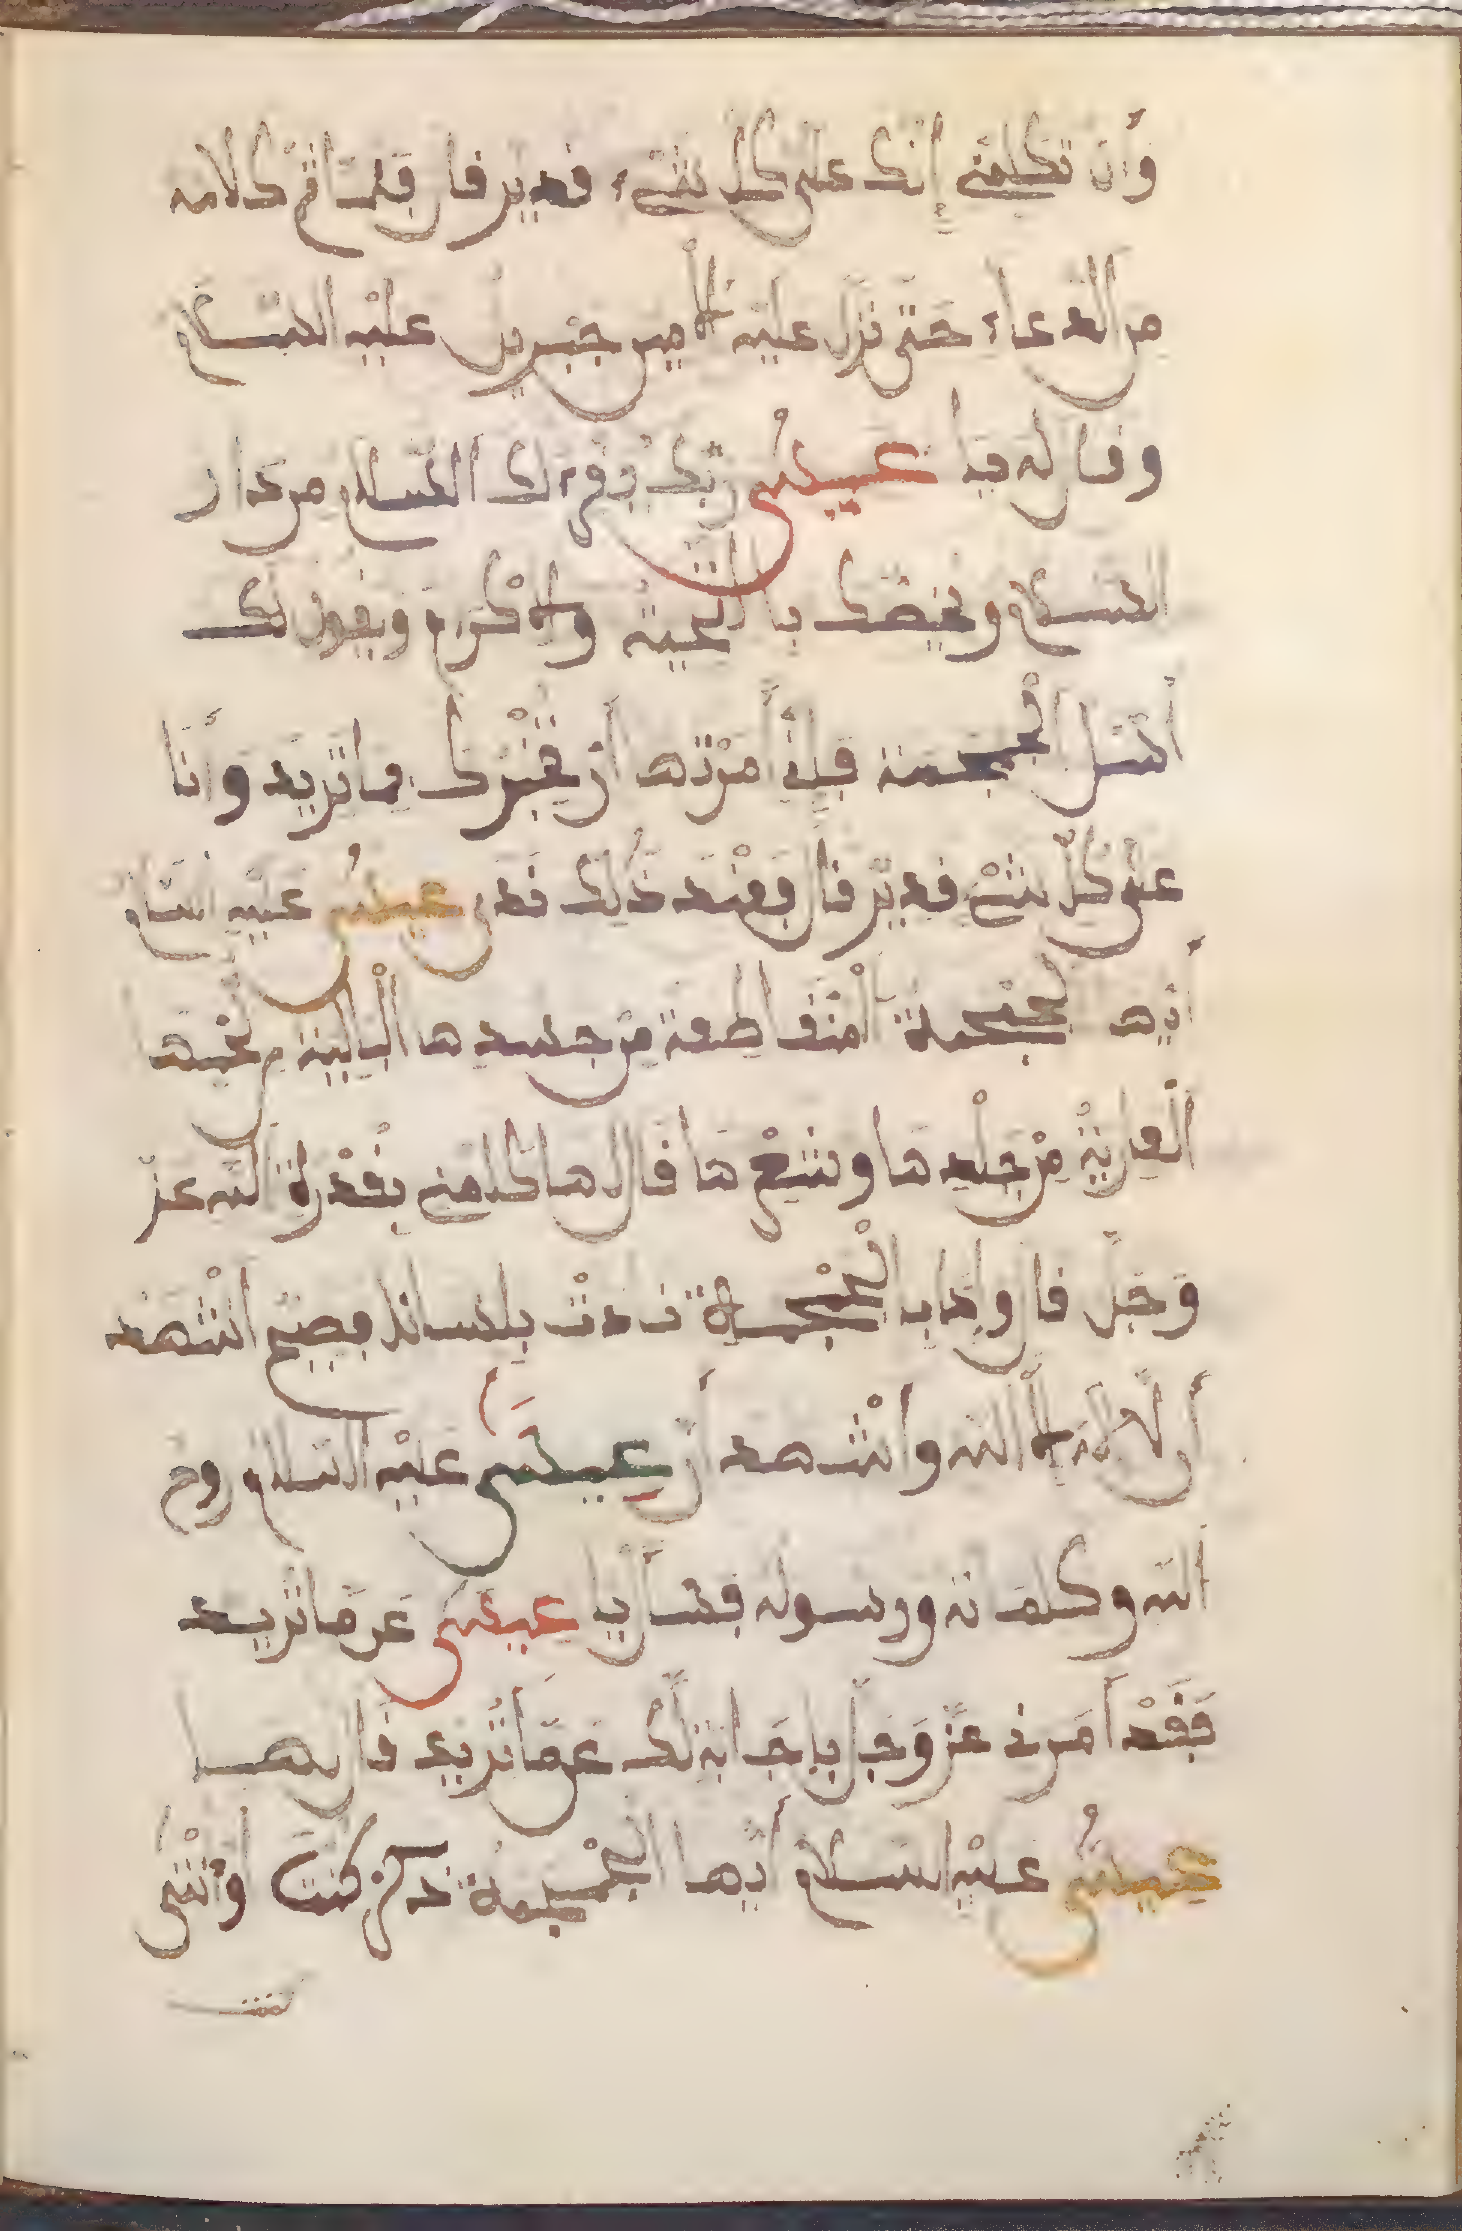 وأن تكلمني إنك على كل شيء قدير قال فما تم كلامه
من الدعاء حتى نزل عليه الأمين جبريل عليه السلام
وقال له يا عيسى ربك يقرء لك السلام من دار
السلام ويخصك بالتحية والإكرام ويقول لك
أسئل الجمجمة فإني أمرتها أن تخبرك بما تريد وأنا
على كل شيء قدير قال فعند ذلك عيسى عليه السلام
أيها الجمجمة المنقاطعة من جسدها البالية من لحمها
العارية من جلدها وشعرها قال لها كلمني بقدرة الله عز
وجل قال وإذا بالجمجمة نادت بلسان فصيح أشهد
أن لا إله إلا الله وأشهد أن عيسى عليه السلام روح
الله وكلمته ورسوله فسأل يا عيسى عن ما تريد
فقد أمرني عز وجل بإجابة لك عما تريد قال لها
عيسى عليه السلام أيها الجمجمة ذكر كنت أو أنثى